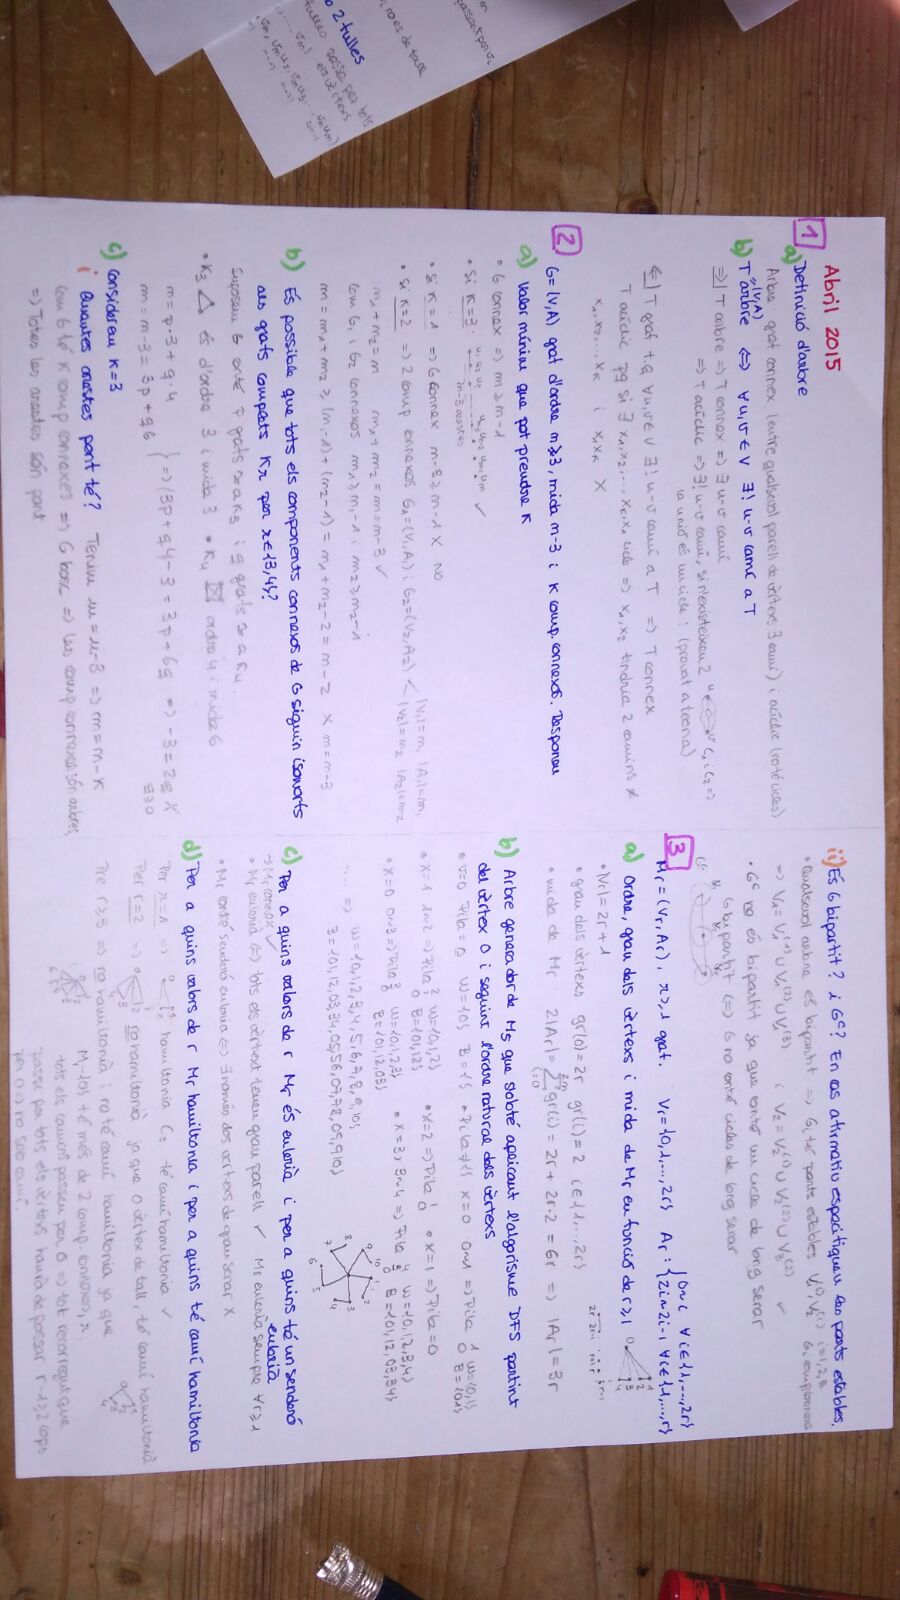 Abril 2015
1
a) Definició d'arbre
Arbre: graf connex (entre qualsevol parell de vèrtexs ∃ camí) i acíclic (no té cicles)
b) T=(V,A) arbre ⇔ ∀u,v∈V ∃! u-v camí a T
⇒| T arbre ⇒ T connex ⇒ ∃ u-v camí
⇒ T acíclic ⇒ ∃! u-v camí, si n'existeixen 2 C1 i C2 ⇒
la unió és un cicle! (provat a teoria)
⇐| T graf tq ∀u,v∈V ∃! u-v camí a T ⇒ T connex
T acíclic pq si ∃ x1,x2,..., xk,x1 cicle ⇒ x1,x2 tindria 2 camins ≠
x1,x2,...,xk i x1,xk X
2
G=(V,A) graf d'ordre n≥3, mida n-3 i k comp. connexos. Responeu
a) Valor mínim que pot prendre k
• G connex ⇒ m≥n-1
• Si k=3
n-3 arestes ✓
• Si k=1 ⇒ G connex n-3≥n-1 X NO
• Si k=2 ⇒ 2 comp connexos G1=(V1,A1) i G2=(V2,A2) < |V1|=n1 |A1|=m1
|V2|=n2 |A2|=m2
n1+n2=n m1+m2=m=n-3 ✓
Com G1 i G2 connexos m1≥n1-1 i m2≥n2-1
m=m1+m2≥(n1-1)+(n2-1)=n1+n2-2=n-2 X m=n-3
b) És possible que tots els components connexos de G siguin isomorfs
als grafs complets Kr per r∈{3,4}?
Suposem G conté p grafs ≅ a K3 i q grafs ≅ a K4.
• K3 és d'ordre 3 i mida 3 • K4 ordre 4 i mida 6
n=p·3+q·4
m=n-3=3p+q6 } ⇒ (3p+q4)-3=3p+6q ⇒ -3=2q X
q≥0
c) Considerau k=3
i Quantes arestes pont té? Tenim m=n-3 ⇒ m=n-k
Com G té k comp connexes ⇒ G bosc ⇒ les comp connexes són arbres,
⇒ Totes les arestes són pont
ii) És G bipartit? i Gᶜ? En cas afirmatiu especifiqueu les parts estables.
• Qualsevol arbre és bipartit ⇒ Gi té parts estables V1⁽ⁱ⁾, V2⁽ⁱ⁾ i=1,2,3
Gi comp connexa
⇒ V1=V1⁽¹⁾∪V1⁽²⁾∪V1⁽³⁾ i V2=V2⁽¹⁾∪V2⁽²⁾∪V2⁽³⁾ ✓
• Gᶜ no és bipartit ja que conté un cicle de long senar
G bipartit ⇔ G no conté cicles de long senar
3
Mr=(Vr,Ar), r≥1 graf. Vr={0,1,...,2r} Ar: { 0∼i ∀i∈{1,...,2r}
2i∼2i-1 ∀i∈{1,...,r}
a) Ordre, grau dels vèrtexs i mida de Mr en funció de r≥1
• |Vr|=2r+1
• grau dels vèrtexs gr(0)=2r gr(i)=2 i∈{1,...,2r}
• mida de Mr 2|Ar|=∑gr(i)=2r+2r·2=6r ⇒ |Ar|=3r
b) Arbre generador de M5 que s'obté aplicant l'algorisme DFS partint
del vèrtex 0 i seguint l'ordre natural dels vèrtexs
• v=0 Pila=0 W={0} B={} • Pila≠{} x=0 0∼1 ⇒ Pila 1 0 W={0,1} B={01}
• x=1 1∼2 ⇒ Pila 2 1 0 W={0,1,2} B={01,12} • x=2 ⇒ Pila 1 0 • x=1 ⇒ Pila=0
• x=0 0∼3 ⇒ Pila 3 0 W={0,1,2,3} B={01,12,03} • x=3, 3∼4 ⇒ Pila 4 3 0 W={0,1,2,3,4} B={01,12,03,34}
.... ⇒ W={0,1,2,3,4,5,6,7,8,9,10}
B={01,12,03,34,05,56,07,78,09,910}
c) Per a quins valors de r Mr és eulerià i per a quins té un senderó
eulerià
⇒ Mr connex ✓
• Mr eulerià ⇔ tots els vèrtexs tenen grau parell ✓ Mr eulerià sempre ∀r≥1
• Mr conté senderó eulerià ⇔ ∃ només dos vèrtexs de grau senar X
d) Per a quins valors de r Mr hamiltonià i per a quins té camí hamiltonià
Per r=1 ⇒ hamiltonià C3 té camí hamiltonià ✓
Per r=2 ⇒ no hamiltonià ja que 0 vèrtex de tall, té camí hamiltonià
Per r≥3 ⇒ no hamiltonià i no té camí hamiltonià ja que
Mr-{0} té més de 2 comp. connexos, r.
tots els camins passen per 0 ⇒ tot recorregut que
passi per tots els vèrtexs haurà de passar r-1≥2 cops
per 0 ⇒ no serà camí.